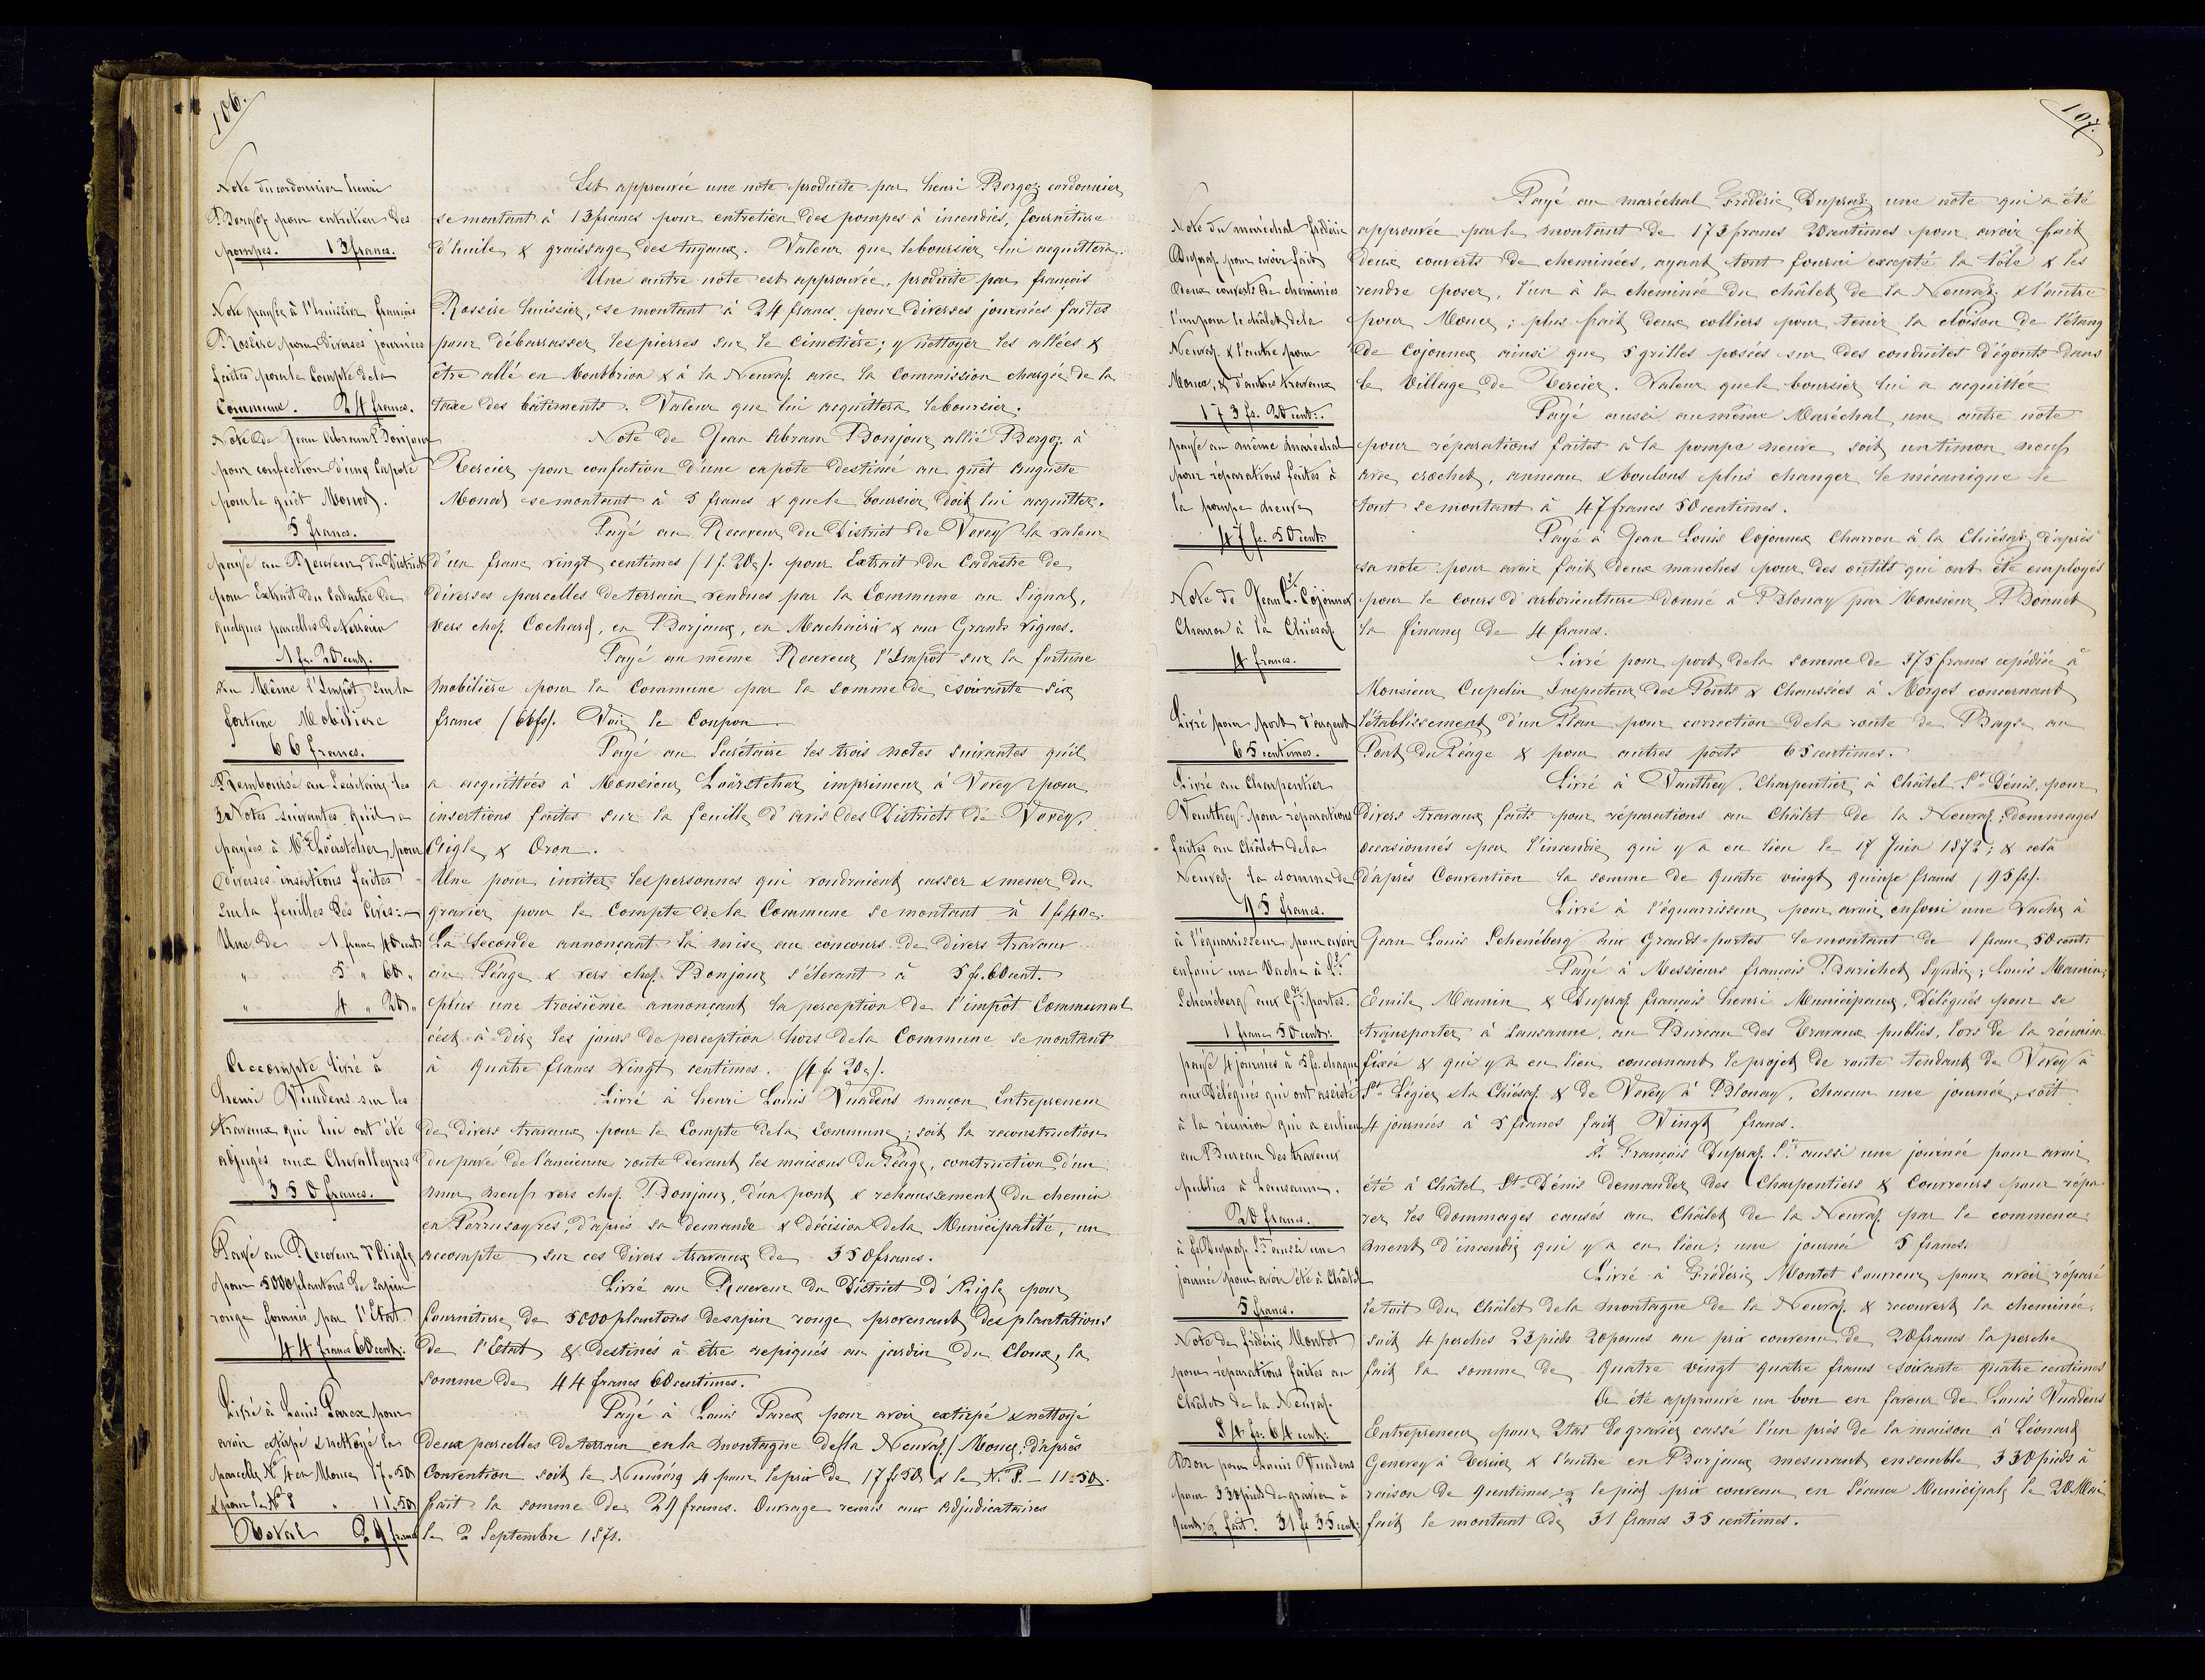 106.
Note du cordonnier henri
Bergoz pour entretien des
pompes. 13 francs.
Note payée à l'huissier françois
Rossire pour diverses journées
faites pour le Compte de la
Commune. 24 francs.
Note de Jean Abram Bonjour
pour confection d'une capote
pour le guêt Monod.
5 francs.
payé au Receveur du District
pour Extrait du Cadastre de
quelques parcelles de terrein
1 fr. 20 cent.
Au Même l'Impôt sur la
fortune Mobilière
66 francs.
Remboursé au Secrétaire les
3 Notes suivantes qu'il a
payées à Mr Loërtscher pour
diverses insertions faites
sur la feuilles des Avis:
Une de 1 franc 40 cent
" 5 " 60 "
" 4 " 20 "
Accompte livré à
henri Vuadens sur les
travaux qui lui ont été
adjugés aux Chevalleyres
350 francs.
Payé au Receveur d'Aigle
pour 5000 plantons de sapin
rouge fournis par l'Etat.
44 francs 60 cent:
Livré à Louis Parex pour
avoir extirpé & nettoyé la
parcelle No 4 en Mouce 17.50
& pour le No 8 " 11.50
Total 29 francs
Est approuvée une note produite par henri Bergoz cordonnier
se montant à 13 francs pour entretien des pompes à incendies, fourniture
d'huile & graissage des tuyaux. Valeur que le boursier lui acquittera.
Une autre note est approuvée, produite par françois
Rossire huissier, se montant à 24 francs pour diverses journées faites
pour débarrasser les pierres sur le Cimetière; y nettoyer les allées &
être allé en Montbrion & à la Neuvaz avec la Commission chargée de la
taxe des bâtiments. Valeur que lui acquittera le boursier.
Note de Jean Abram Bonjour allié Bergoz à
Tercier pour confection d'une capote destinée au guêt Auguste
Monod se montant à 5 francs & que le boursier doit lui acquitter.
Payé au Receveur du District de Vevey la valeur
d'un franc vingt centimes (1 f. 20 c). pour Extrait du Cadastre de
diverses parcelles de terrain vendues par la Commune au Signal,
vers chez Cochard, en Borjoux, en Machairix & aux Grands vignes.
Payé au même Receveur l'Impôt sur la fortune
mobilière pour la Commune par la somme de soixante six
francs (66 fs). Voir le Coupon.
Payé au Secrétaire les trois notes suivantes qu'il
a acquittées à Monsieur Loërtscher imprimeur à Vevey pour
insertions faites sur la feuille d'avis des Districts de Vevey,
Aigle & Oron.
Une pour inviter les personnes qui voudraient casser & mener du
gravier pour le Compte de la Commune se montant à 1 f 40 c.
La Seconde annonçant la mise au concours de divers travaux
au Péage & vers chez Bonjour s'élevant à 5 f. 60 cent.
plus une troisième annonçant la perception de l'impôt Communal
c'est à dire les jours de perception hors de la Commune se montant
à quatre francs vingt centimes. (4 f 20 c).
Livré à henri Louis Vuadens maçon Entrepreneur
de divers travaux pour le Compte de la Commune; soit la reconstruction
du pavé de l'ancienne route devant les maisons du Péage, construction d'un
mur neuf vers chez Bonjour, d'un pont & rehaussement du chemin
en Perrusayres, d'après sa demande & décision de la Municipalité, un
accompte sur ces divers travaux de 350 francs.
Livré au Receveur du District d'Aigle pour
fourniture de 5000 plantons de sapin rouge provenant des plantations
de l'Etat & destinés à être repiqués au jardin du Cloux, la
somme de 44 francs 60 centimes.
Payé à Louis Parex pour avoir extirpé & nettoyé
deux parcelles de terrain en la montagne de la Neuvaz / Mouce, d'après
Convention soit le Numéro 4 pour le prix de 17 f 50 & le No 8. – 11.50.
fait la somme de 29 francs. Ouvrage remis aux adjudicataires
le 2 Septembre 1871.
107.
Note du maréchal frédéric
Dupraz pour avoir fait
deux couverts de cheminées
l'un pour le châlet de la
Neuvaz & l'autre pour
Mouce, & d'autres travaux
173 fs. 20 cent:.
payé au même maréchal
pour réparations faites à
la pompe neuve
47 fs. 50 cent:
Note de Jean Ls Cojonnex
Charron à la Chiésaz.
4 francs.
Livré pour port d'argent
65 centimes.
Livré au Charpentier
Vauthey pour réparations
faites au Châlet de la
Neuvaz la somme de
95 francs.
à l'équarrisseur pour avoir
enfoui une Vache à Ls
Scheneberg aux Gdes portes.
1 franc 50 cent:
payé 4 journées à 5 f. chaque
aux Délégués qui ont assisté
à la réunion qui a eu lieu
au Bureau des travaux
publics à Lausanne.
20 francs.
à f. Dupraz aussi une
journée pour avoir été à Châtel
5 francs.
Note de frédéric Montet
pour réparations faites au
Châlet de la Neuvaz.
84 fs: 64 cent:
Bon pour Louis Vuadens
pour 330 pieds de gravier à
9 cent: ½ fait. 31 f 35 cent:
Payé au maréchal Frédéric Dupraz une note qui a été
approuvée par le montant de 173 francs 20 centimes pour avoir fait
deux couverts de cheminées, ayant tout fourni excepté la tôle & les
rendre poser, l'un à la cheminée du châlet de la Neuvaz & l'autre
pour Mouce; plus fait deux colliers pour tenir la cloison de l'étang
de Cojonnex ainsi que 5 grilles posées sur des conduites d'égouts dans
le Village de Tercier. Valeur que le boursier lui a acquittée
Payé aussi au même Maréchal une autre note
pour réparations faites à la pompe neuve soit un timon neuf
avec crochet, anneau & boulons plus changer le mécanique le
tout se montant à 47 francs 50 centimes.
Payé à Jean Louis Cojonnex Charron à la Chiésaz d'après
sa note pour avoir fait deux manches pour des outils qui ont été employés
pour le Cours d'arboriculture donné à Blonay par Monsieur Bonnet
la finance de 4 francs.
Livré pour port de la somme de 375 francs expédiée à
Monsieur Cupelin Inspecteur des Ponts & Chaussées à Morges concernant
l'établissement d'un Plan pour correction de la route de Bayse au
Pont du Péage & pour autres ports 65 centimes.
Livré à Vauthey, Charpentier à Châtel St Dénis, pour
divers travaux faits pour réparations au Châlet de la Neuvaz; dommages
occasionnés par l'incendie qui y a eu lieu le 17 Juin 1872; & celà
d'après Convention la somme de quatre vingt quinze francs (95 fs).
Livré à l'équarrisseur pour avoir enfoui une Vache à
Jean Louis Scheneberg aux Grands-portes le montant de 1 franc 50 cent:
Payé à Messieurs françois Barichet Syndic; Louis Mamin;
Emile Mamin & Dupraz françois henri Municipaux, Délégués pour se
transporter à Lausanne, au Bureau des Travaux publics, lors de la réunion
fixée & qui y a eu lieu concernant le projet de route tendant de Vevey à
St Légier & la Chiésaz & de Vevey à Blonay, chacun une journée, soit
4 journées à 5 francs fait Vingt francs.
à François Dupraz aussi une journée pour avoir
été à Châtel St Dénis demander des Charpentiers & Couvreurs pour répa
rer les dommages causés au Châlet de la Neuvaz par le commence-
ment d'incendie qui y a eu lieu; une journée 5 francs.
Livré à Frédéric Montet Couvreur pour avoir réparé
le toit du Châlet de la montagne de la Neuvaz & recouvert la cheminée
soit 4 perches 23 pieds 20 pouces au prix convenu de 20 francs la perche
fait la somme de quatre vingt quatre francs soixante quatre centimes
A été approuvé un bon en faveur de Louis Vuadens
Entrepreneur pour 2 tas de gravier cassé l'un près de la maison à Léonard
Genevey à Tercier & l'autre en Borjoux mesurant ensemble 330 pieds à
raison de 9 centimes ½ le pied prix convenu en Séance Municipale le 20 Mai
fait le montant de 31 francs 35 centimes.